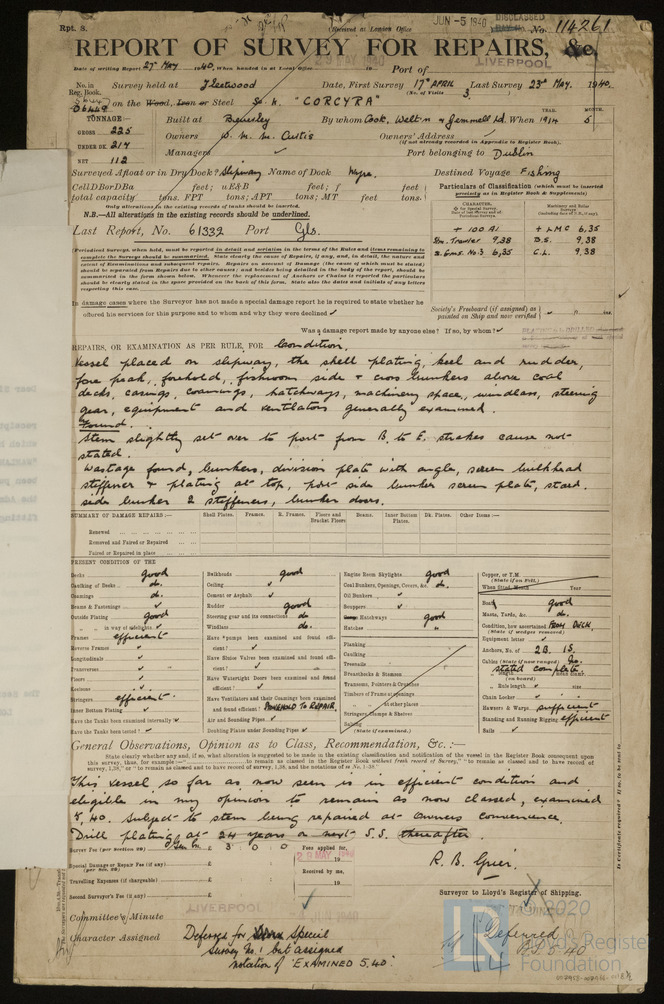 Rpt. 8.
Received at London Office
JUN -5 1940
DISCLASSED
No. 114261
REPORT OF SURVEY FOR REPAIRS, &c.
LIVERPOOL
Date of writing Report 27th MAY 1940. When handed in at Local Office 29 MAY 1940 Port of
No. in Reg. Book. Survey held at Fleetwood Date, First Survey 17th APRIL Last Survey 23rd MAY. 1940.
(No. of Visits 3.
36449 on the Wood, Iron or Steel "CORCYRA"
TONNAGE
GROSS 225
UNDER DK. 214
NET 112
Built at Beverley By whom Cook, Welton & Gemmell Ld. When 1914 5
YEAR. MONTH.
Owners Curtis Owners' Address
(if not already recorded in Appendix to Register Book).
Managers Port belonging to Dublin
Surveyed Afloat or in Dry Dock? Slipway Name of Dock Wyre. Destined Voyage Fishing
Cell D Bor D Ba feet; u E & B feet; f feet
total capacity tons. FPT tons; APT tons; MT feet tons.
Only alterations in the existing records of tanks should be inserted.
N.B.—All alterations in the existing records should be underlined.
Particulars of Classification (which must be inserted precisely as in Register Book & Supplements)
Last Report, No. 61332 Port Gls.
CHARACTER.
Machinery and Boiler Surveys
+ 100 A1 + LMC 6,35
Stm. Trawler 9,38 B.S. 9,38
S. Gms. No. 3 6,35 C.L. 9,38
Periodical Surveys, when held, must be reported in detail and seriatim in the terms of the Rules and items remaining to complete the Survey should be summarized. State clearly the cause of Repairs, if any, and, in detail, the nature and extent of Examinations and subsequent Repairs. Repairs on account of Damage (the cause of which must be stated) should be separated from Repairs due to other causes; and besides being detailed in the body of the report, should be summarized in the form shown below. Whenever the replacement of Anchors or Chains is reported the particulars should be clearly stated in the space provided on the back of this form. State also the dates and initials of any letters respecting this case.
In damage cases where the Surveyor has not made a special damage report he is required to state whether he offered his services for this purpose and to whom and why they were declined
Society's Freeboard (if assigned) as painted on Ship and now verified
Was a damage report made by anyone else? If so, by whom?
REPAIRS, OR EXAMINATION AS PER RULE, FOR Condition.
Vessel placed on slipway, the shell plating, keel and rudder,
fore peak, forehold, fishroom side & cross bunkers above coal
decks, casings, coamings, hatchways, machinery space, windlass, steering
gear, equipment and ventilators generally examined.
Found.
Stem slightly set over to port from B. to E. strakes cause not
stated.
Wastage found, bunkers, division plate with angle, screen bulkhead
stiffener & plating at top, port side bunker screen plate, starb.
side bunker 2 stiffeners, bunker doors.
SUMMARY OF DAMAGE REPAIRS:— Shell Plates. Frames. R. Frames. Floors and Bracket Floors Beams. Inner Bottom Plates. Dk. Plates. Other Items:—
Renewed
Removed and Faired or Repaired
Faired or Repaired in place
PRESENT CONDITION OF THE
Decks good
Caulking of Decks do.
Coamings do.
Beams & Fastenings
Outside Plating good
in way of sidelights
Frames efficient
Reverse Frames
Longitudinals
Transverses
Floors
Keelsons
Stringers efficient.
Inner Bottom Plating
Have the Tanks been examined internally
Have the Tanks been tested?
Bulkheads good
Ceiling
Cement or Asphalt
Rudder good
Steering gear and its connections do.
Windlass do.
Have Pumps been examined and found efficient?
Have Sluice Valves been examined and found efficient?
Have Watertight Doors been examined and found efficient?
Have Ventilators and their Coamings been examined and found efficient?
Air and Sounding Pipes
Doubling Plates under Sounding Pipes
Engine Room Skylights good
Coal Bunkers, Openings, Covers, &c. do.
Oil Bunkers
Scuppers
Hatchways good
Hatches
Planking
Caulking
Treenails
Breasthooks & Stemson
Transoms, Pointers & Crutches
Timbers of Frame at openings
at other places
Stringers, Clamps & Shelves
Salting
(State if examined.)
Copper, or Y.M.
(State if on Felt.)
When fitted, Month Year
Boats good
Masts, Yards, &c. do.
Condition, how ascertained FROM DECK.
(State if wedges removed)
Equipment letter
Anchors, No. of 2B. 1S.
Cables (State if now ranged) No.
stated complete
length (on board)
Rule length size
Chain Locker
Hawsers & Warps sufficient
Standing and Running Rigging efficient
Sails
General Observations, Opinion as to Class, Recommendation, &c.:—
State clearly whether any and, if so, what alteration is suggested to be made in the existing classification and notification of the vessel in the Register Book consequent upon
This vessel so far as now seen is in efficient condition and
eligible in my opinion to remain as now classed, examined
5,40. Subject to stem being repaired at Owners convenience.
Drill plating at 24 years or next S.S. thereafter.
Survey Fee (per Section 29) £ 3 0 0 Fees applied for,
29 MAY 1940
Special Damage or Repair Fee (if any) (per Sec. 29) £
Received by me,
Travelling Expenses (if chargeable) £
19
Second Surveyor's Fee (if any) £
R. B. Grier.
Surveyor to Lloyd's Register of Shipping.
Committee's Minute
LIVERPOOL
JUN 1940
Character Assigned Deferred for Special
Survey No. 1 but assigned
notation of 'EXAMINED 5,40.'
Deferred
Is Certificate required? If so, to be sent to
© 2020
LR
Lloyd's Register
Foundation